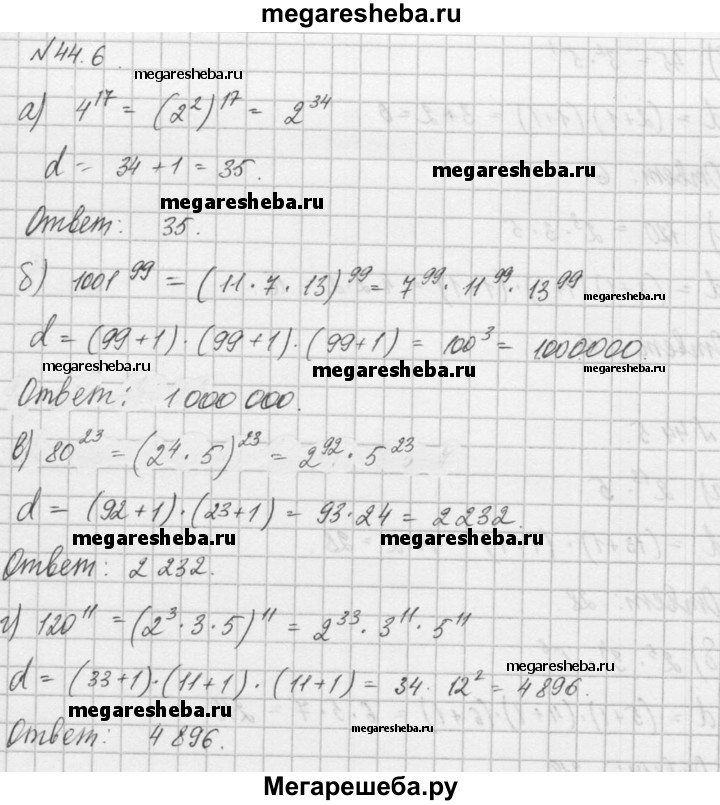 megaresheba.ru
№44.6
megaresheba.ru
а) 4^17 = (2^2)^17 = 2^34
d = 34 + 1 = 35.
megaresheba.ru
megaresheba.ru
Ответ: 35.
б) 1001^99 = (11 · 7 · 13)^99 = 7^99 · 11^99 · 13^99
megaresheba.ru
d = (99+1) · (99+1) · (99+1) = 100^3 = 1000000.
megaresheba.ru
megaresheba.ru
megaresheba.ru
Ответ: 1 000 000.
в) 80^23 = (2^4 · 5)^23 = 2^92 · 5^23
d = (92+1) · (23+1) = 93 · 24 = 2232.
megaresheba.ru
megaresheba.ru
Ответ: 2 232.
г) 120^11 = (2^3 · 3 · 5)^11 = 2^33 · 3^11 · 5^11
megaresheba.ru
d = (33+1) · (11+1) · (11+1) = 34 · 12^2 = 4896.
megaresheba.ru
megaresheba.ru
Ответ: 4 896.
Мегарешеба.ру